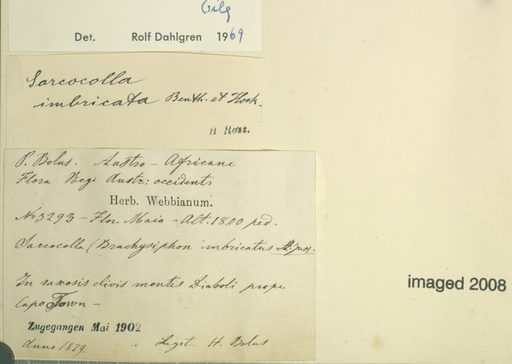 Gilg
Det. Rolf Dahlgren 1969
Sarcocolla
imbricata Benth. et Hook.
H Ross.
P. Bolus. Austro - Africane
Flora Regi Austr: occident:
Herb. Webbianum.
No 3293 - Flor. Maio - Alt. 1800 ped.
Sarcocolla (Brachysiphon imbricatus A. Juss.
In saxosis clivis montis Diaboli prope
Capo Town -
Zugegangen Mai 1902
Anno 1879. Legit. H. Bolus
imaged 2008